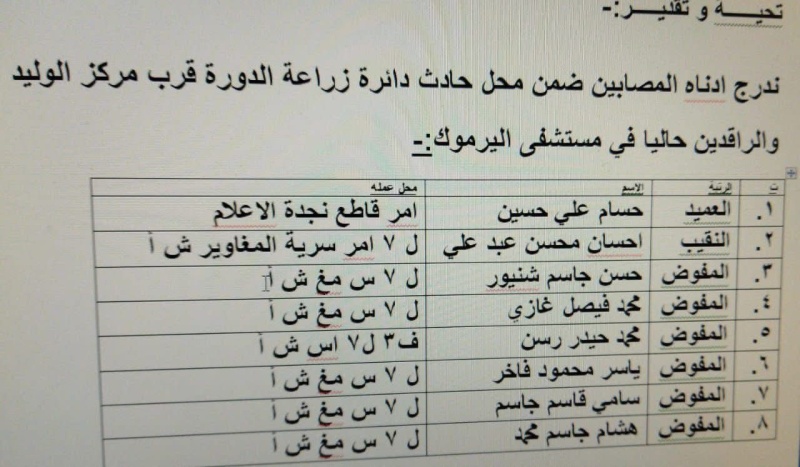 تحيـــة و تقديـــر:-
ندرج ادناه المصابين ضمن محل حادث دائرة زراعة الدورة قرب مركز الوليد
والراقدين حاليا في مستشفى اليرموك:-
ت الرتبة الاسم محل عمله
١. العميد حسام علي حسين امر قاطع نجدة الاعلام
٢. النقيب احسان محسن عبد علي ل ٧ امر سرية المغاوير ش أ
٣. المفوض حسن جاسم شنيور ل ٧ س مغ ش أ
٤. المفوض محمد فيصل غازي ل ٧ س مغ ش أ
٥. المفوض محمد حيدر رسن ف٣ ل٧ اس ش أ
٦. المفوض ياسر محمود فاخر ل ٧ س مغ ش أ
٧. المفوض سامي قاسم جاسم ل ٧ س مغ ش أ
٨. المفوض هشام جاسم محمد ل ٧ س مغ ش أ